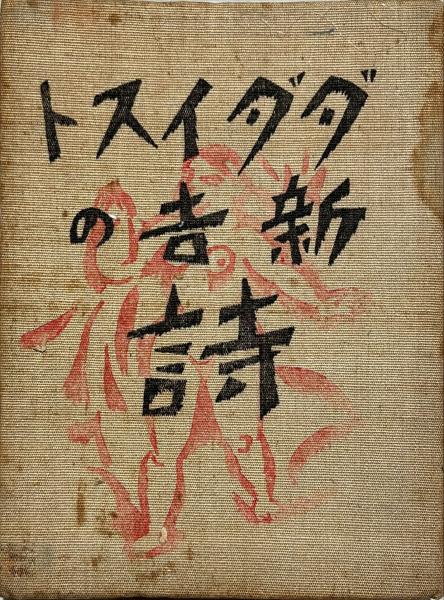 ダダイスト
新吉の
詩